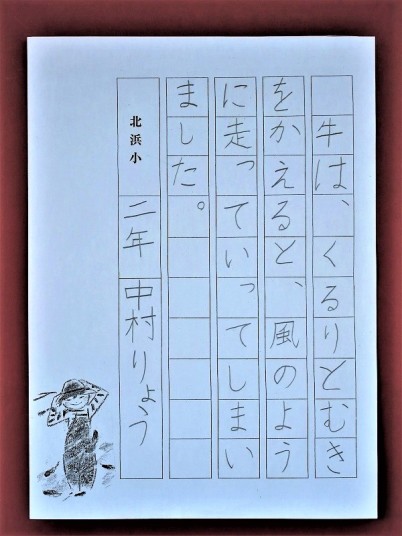 牛は、くるりとむき
をかえると、風のよう
に走っていってしまい
ました。
北浜小 二年 中村りょう